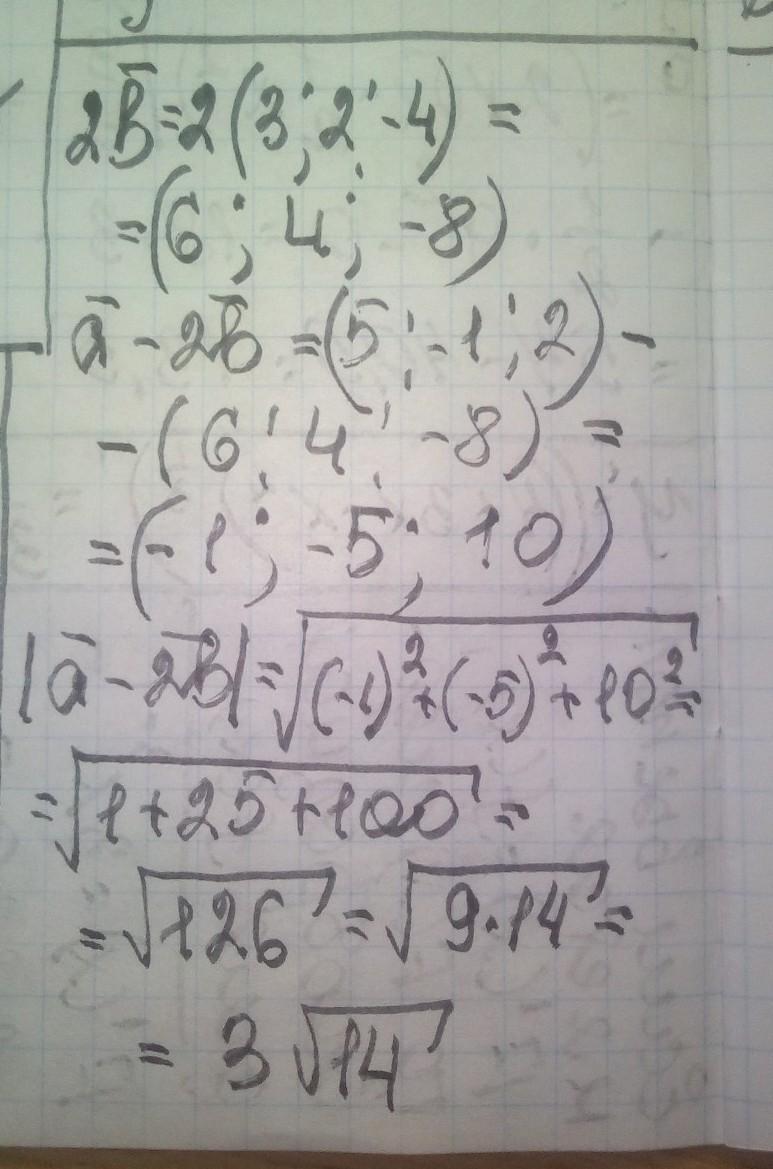 2b̄=2(3;2;-4)=
=(6; 4; -8)
ā-2b̄=(5;-1;2)-
-(6;4;-8)=
=(-1;-5;10)
|ā-2b̄|=√((-1)²+(-5)²+10²)=
=√(1+25+100)=
=√126=√(9·14)=
=3√14